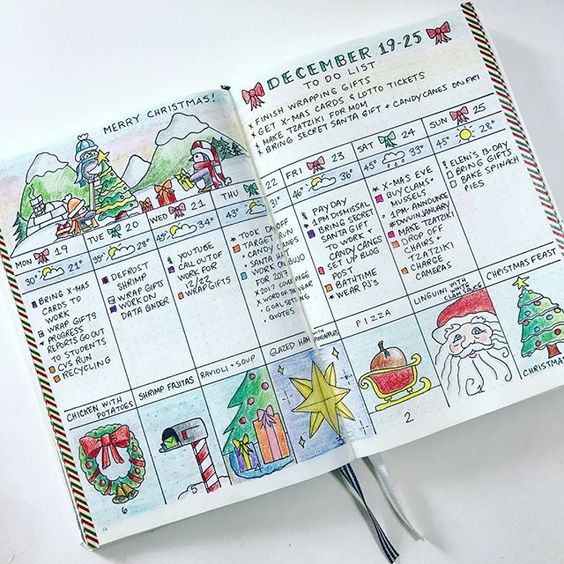 MERRY CHRISTMAS!
MON 19
30° 21°
BRING X-MAS
CARDS TO
WORK
WRAP GIFTS
PROGRESS
REPORTS GO OUT
TO STUDENTS
CVS RUN
RECYCLING
CHICKEN WITH
POTATOES
6
TUE 20
39° 28°
DEFROST
SHRIMP
WRAP GIFTS
WORK ON
DATA BINDER
SHRIMP FAJITAS
WED 21
49° 34°
YOUTUBE
CALL OUT OF
WORK FOR
12/22
WRAP GIFTS
RAVIOLI + SOUP
THU 22
43° 31°
TOOK DAY OFF
TARGET RUN
CANDY CANES
SANTA HATS
WORK ON
FOR 2017
2017 COVER PAGE
WORD OF THE YEAR
GOAL SETTING
QUOTES
GLAZED HAM
WITH PINEAPPLES
DECEMBER 19-25
TO DO LIST
FINISH WRAPPING GIFTS
GET X-MAS CARDS & LOTTO TICKETS
MAKE TZATZIKI FOR MOM
BRING SECRET SANTA GIFT + CANDY CANES ON FRI
FRI 23
45°
PAY DAY
1PM DISMISSAL
BRING SECRET
SANTA GIFT
TO WORK +
CANDY CANES
SET UP BLOG
POST
BATHTIME
WEAR PJ'S
PIZZA
2
SAT 24
45° 33°
X-MAS EVE
BUY CLAMS +
MUSSELS
1PM- ANNOUNCE
MAKE TZATZIKI
DROP OFF
CHAIRS +
TZATZIKI
CHARGE
CAMERAS
LINGUINI WITH
CLAM SAUCE
SUN 25
45° 28°
ELENI'S B-DAY
BRING GIFTS
BAKE SPINACH
PIES
CHRISTMAS FEAST
CHRISTMAS